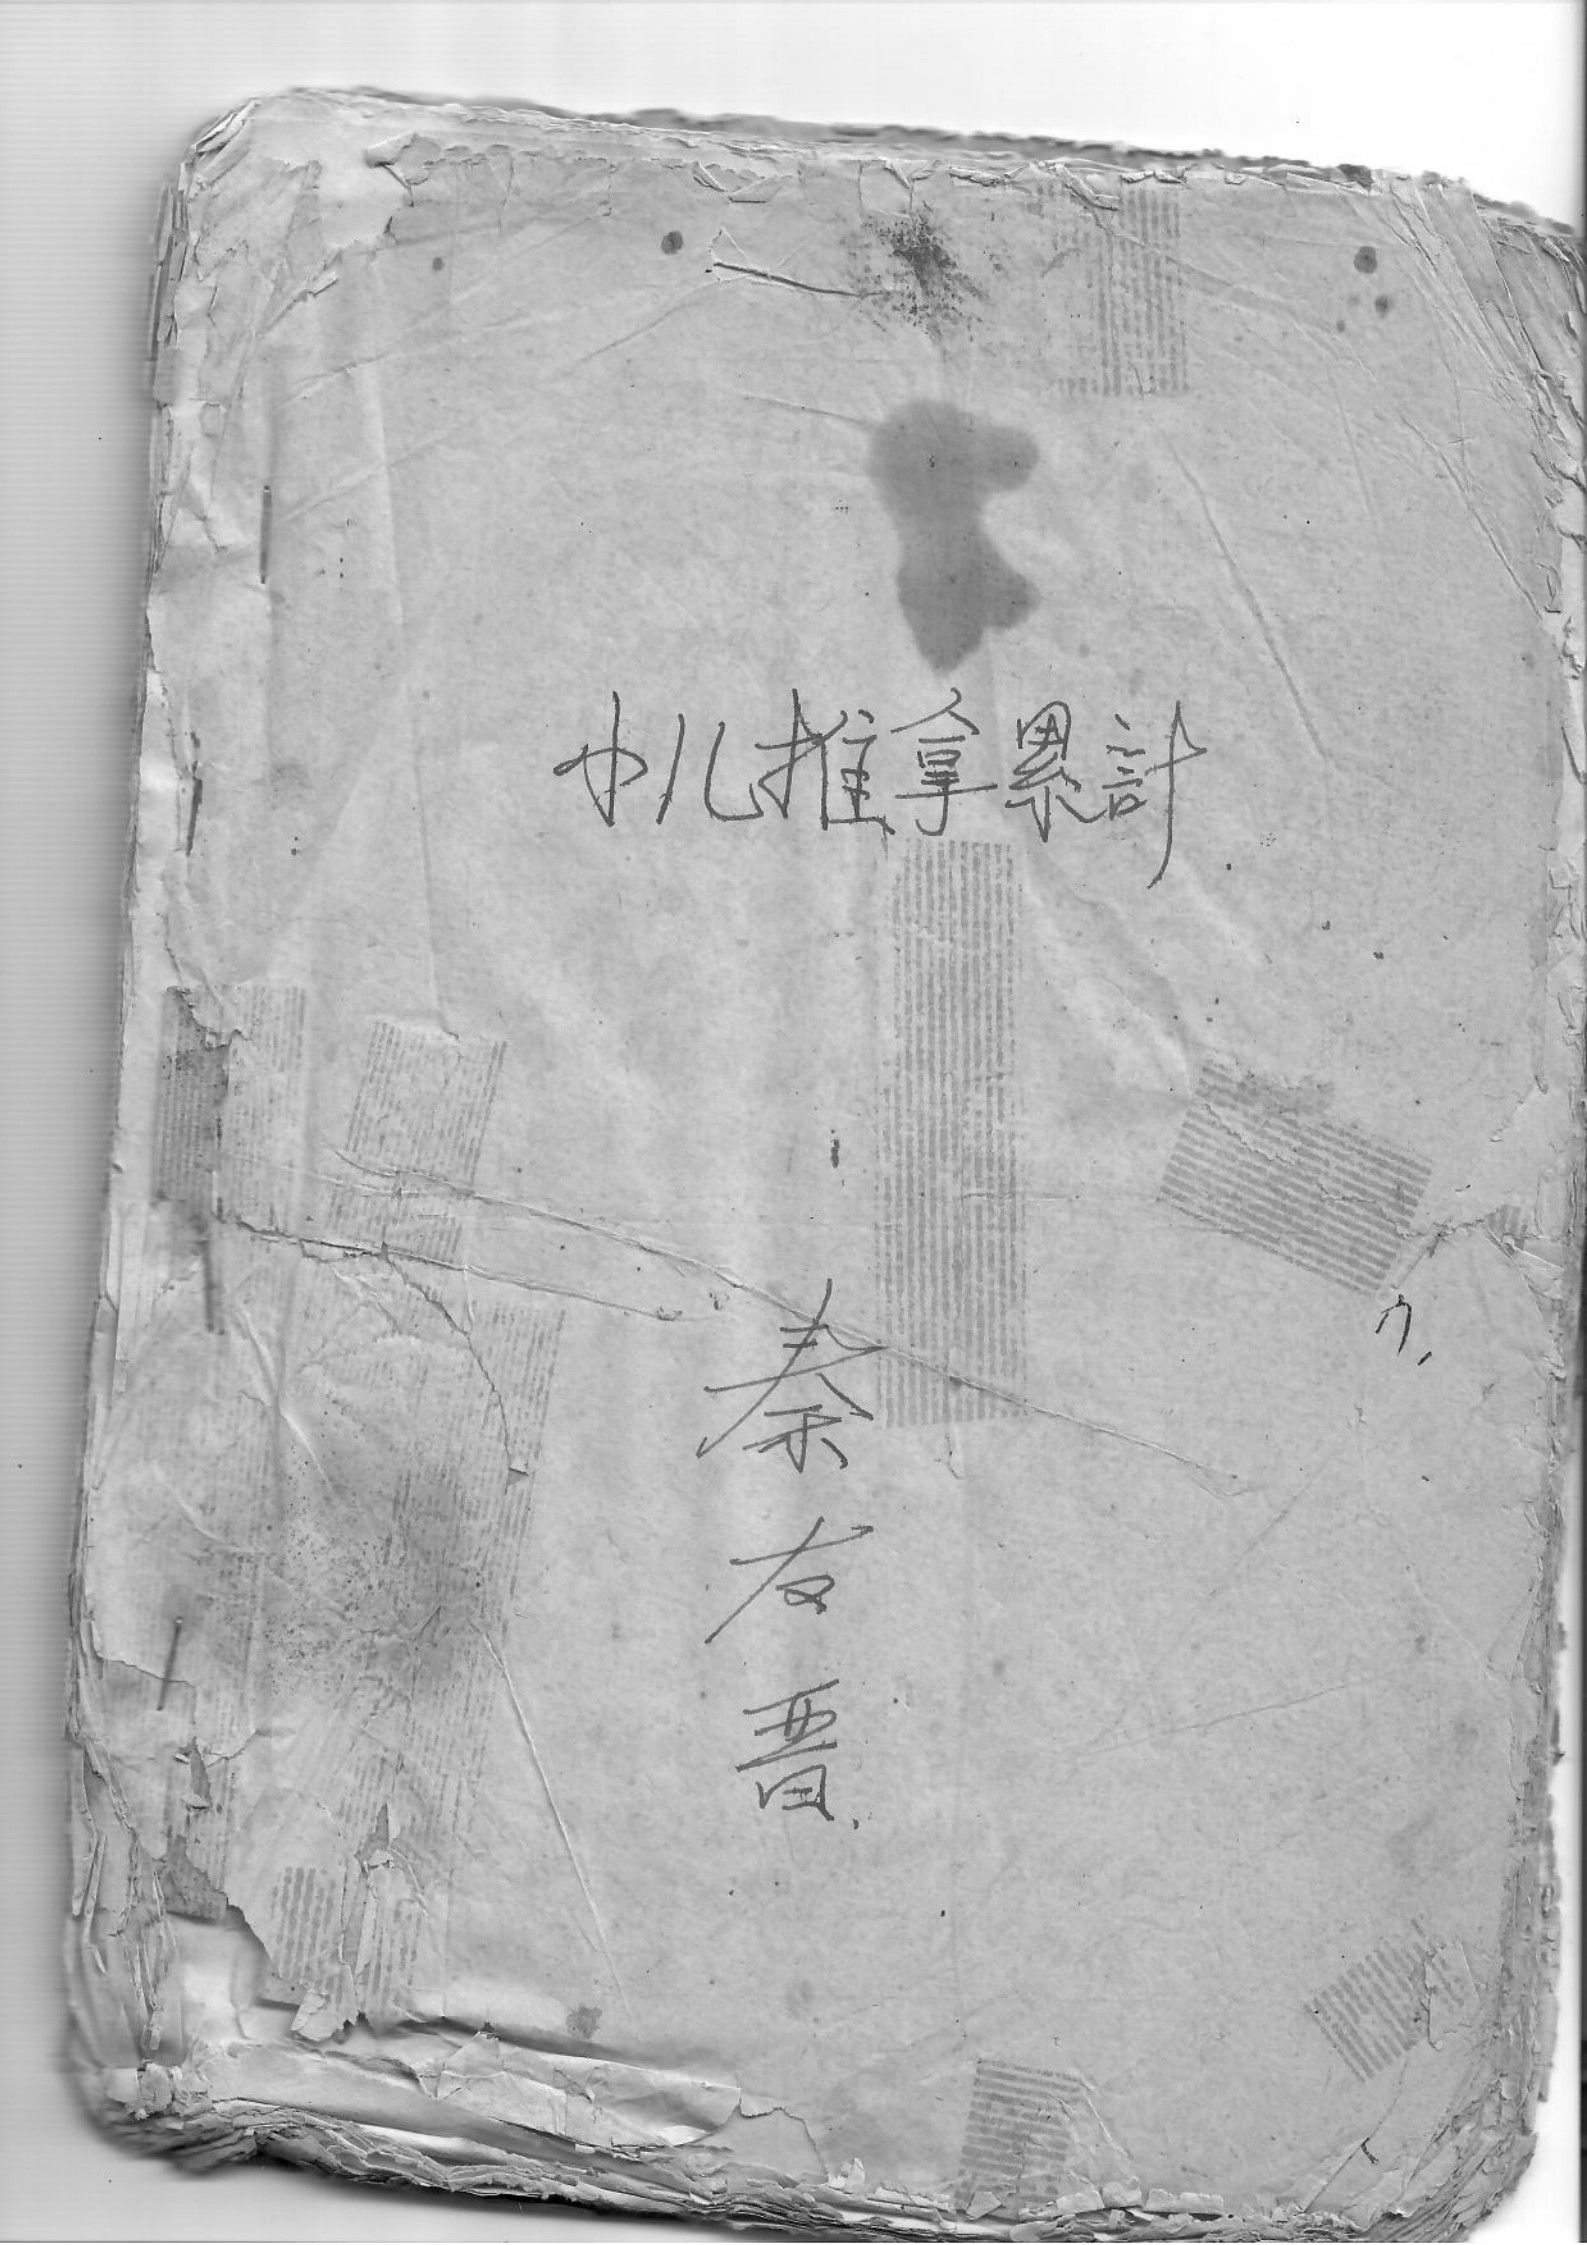 小儿推拿累計
秦友晋